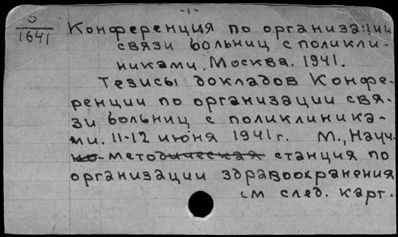 -1-
0
1641
Конференция по организации
связи больниц с поликли-
никами. Москва. 1941.
Тезисы докладов Конфе-
ренции по организации свя-
зи больниц с поликлиника-
ми. 11-12 июня 1941 г. М., Науч-
но-методическая станция по
организации здравоохранения
см след. карт.